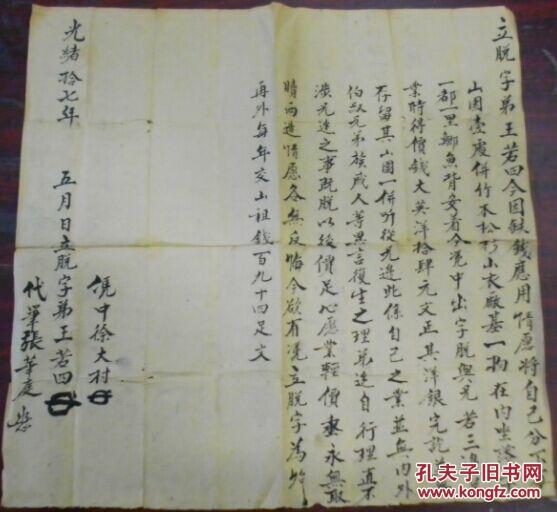 立脱字弟王若四今因缺钱應用情愿将自己分下
山園壹處併竹木松杉山衣廠基一概在内坐落
一都一里鄉魚背安着今凭中出字脱與兄若三
業時得價钱大英洋拾肆元文正其洋银完讫
存留其山園一併听從兄邊此係自己之業並無内外
伯叔兄弟族戚人等異言復生之理弟邊自行理直不
涉兄邊之事既脱以後價足心愿業輕價重永無取
贖两造情愿各無反悔今欲有凭立脱字為炤
再外每年交山祖錢百九十四足文
光緒拾七年 五月日立脱字弟王若四
凭中徐大村
代筆張華慶
孔夫子旧书网
www.kongfz.com